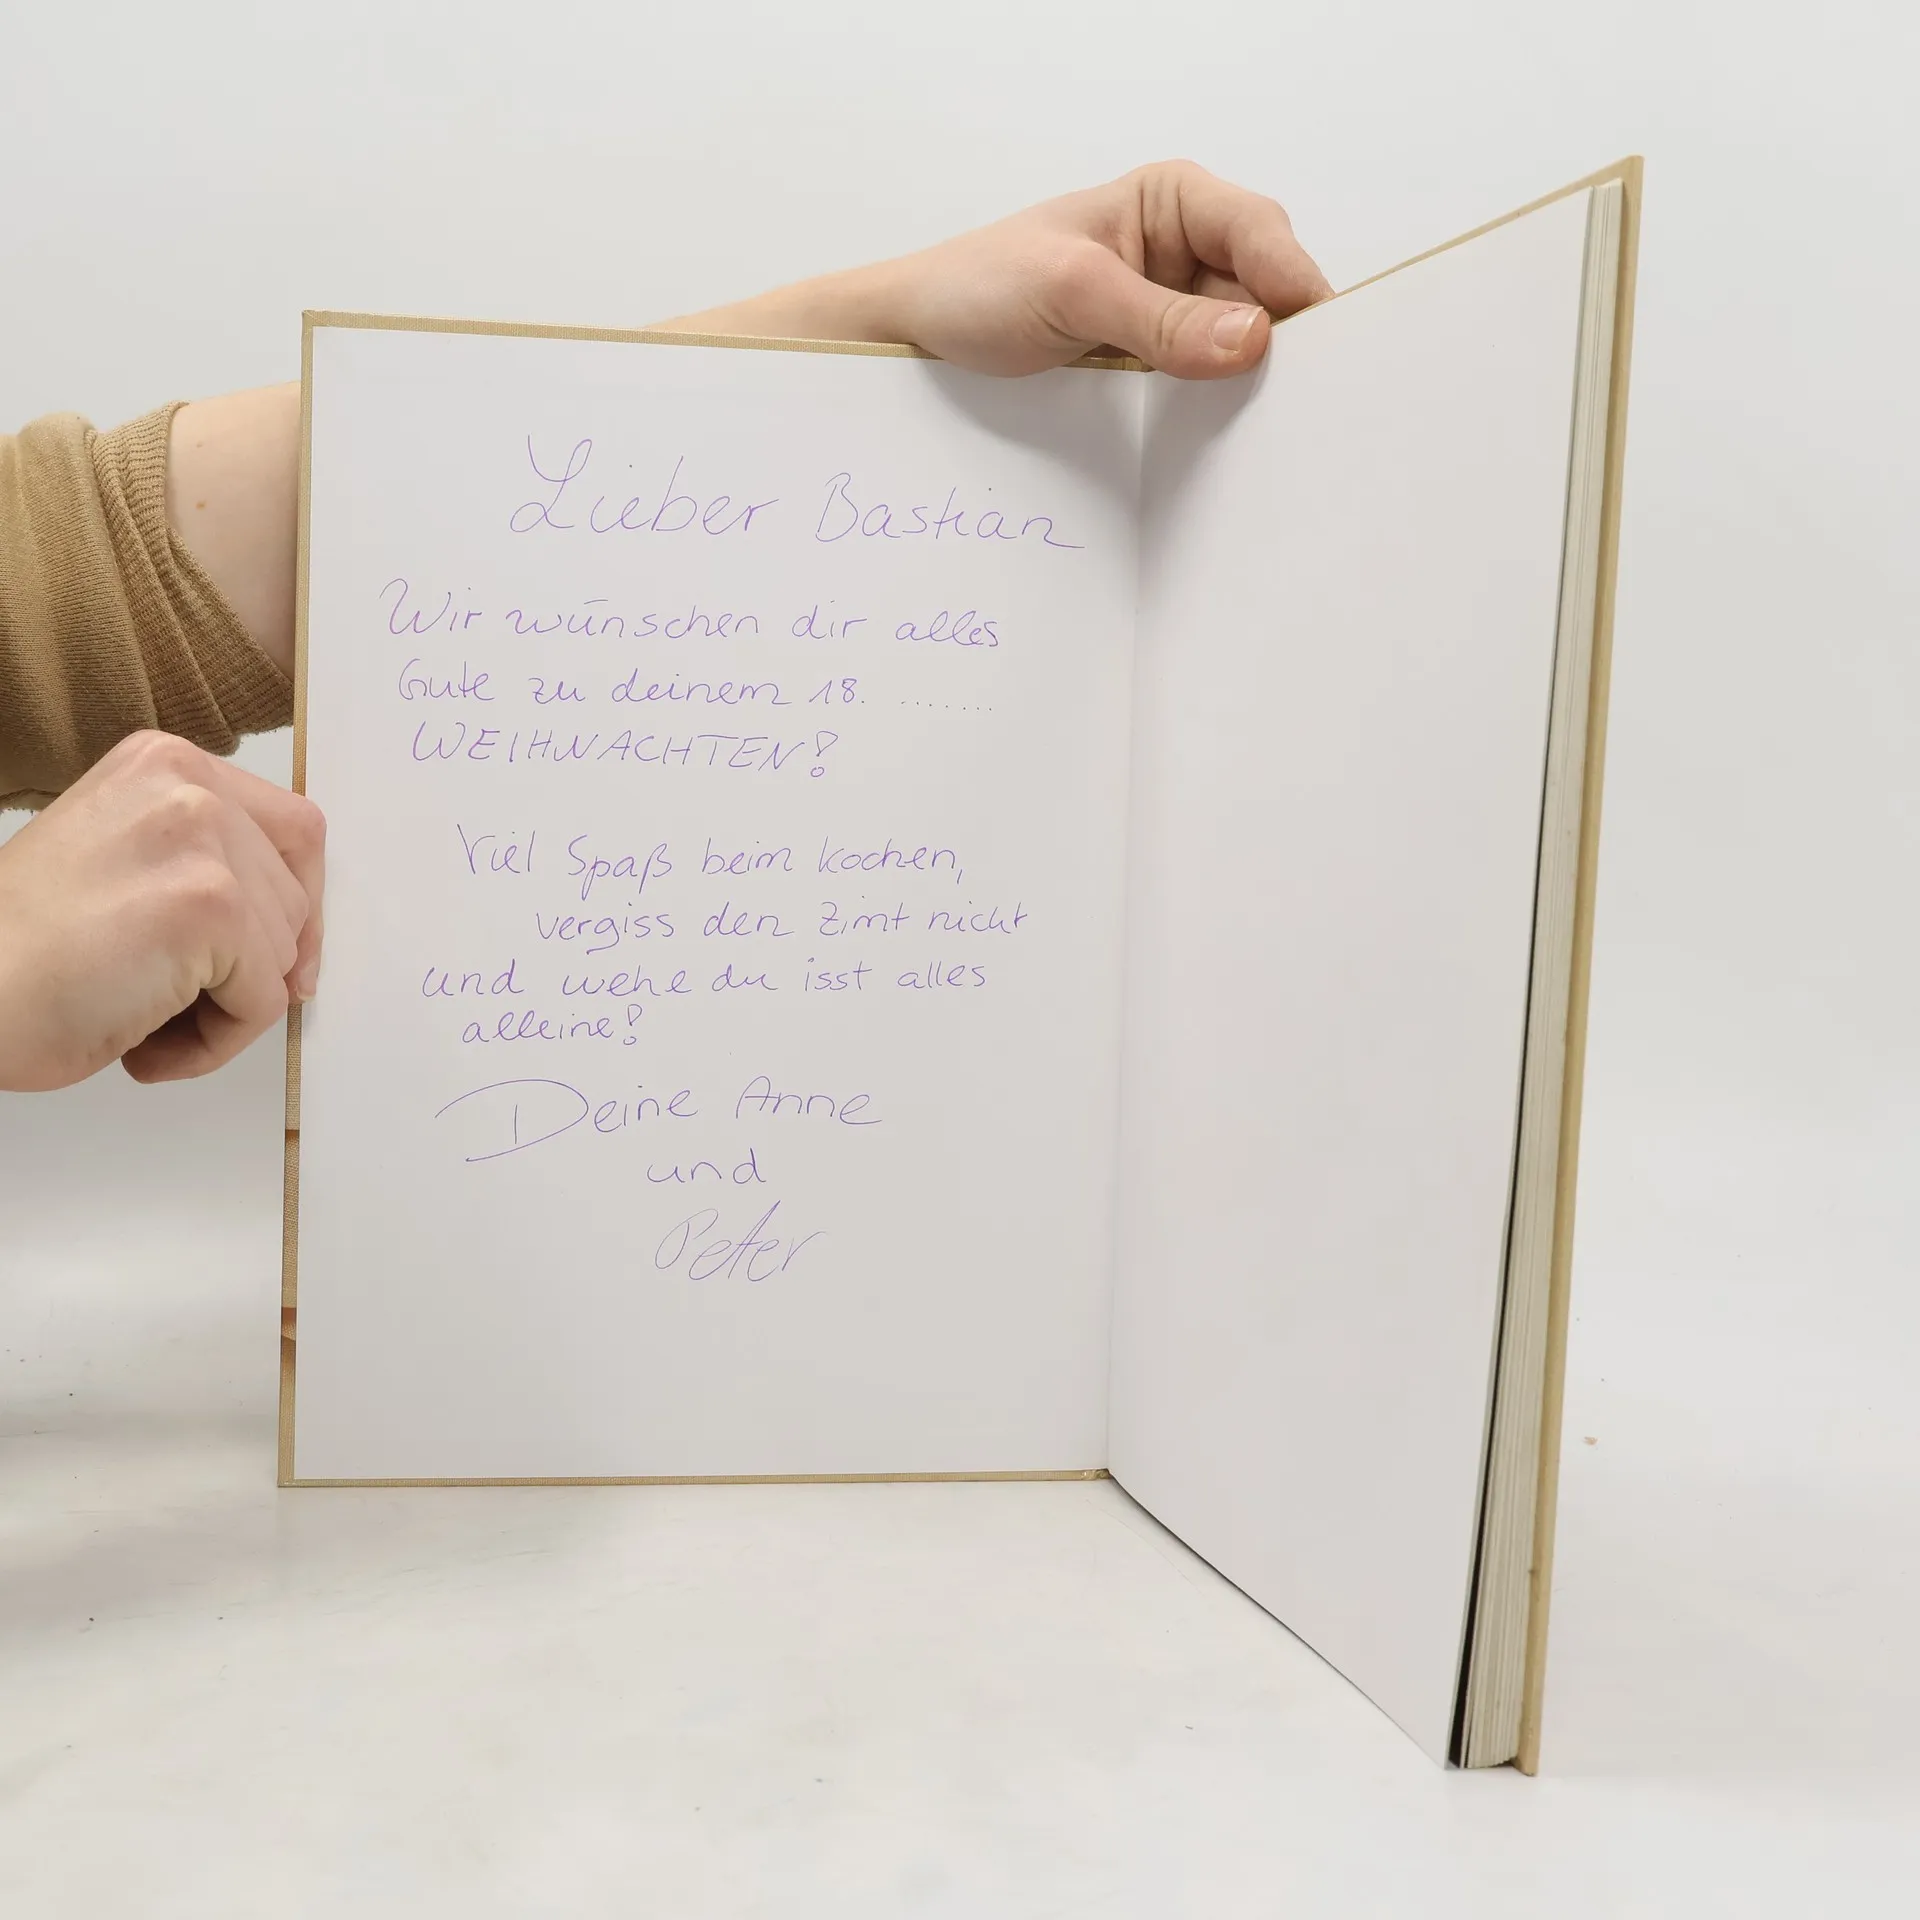 Lieber Bastian
Wir wünschen dir alles
Gute zu deinem 18. .......
WEIHNACHTEN!
Viel Spaß beim kochen,
vergiss den Zimt nicht
und wehe du isst alles
alleine!
Deine Anne
und
Peter